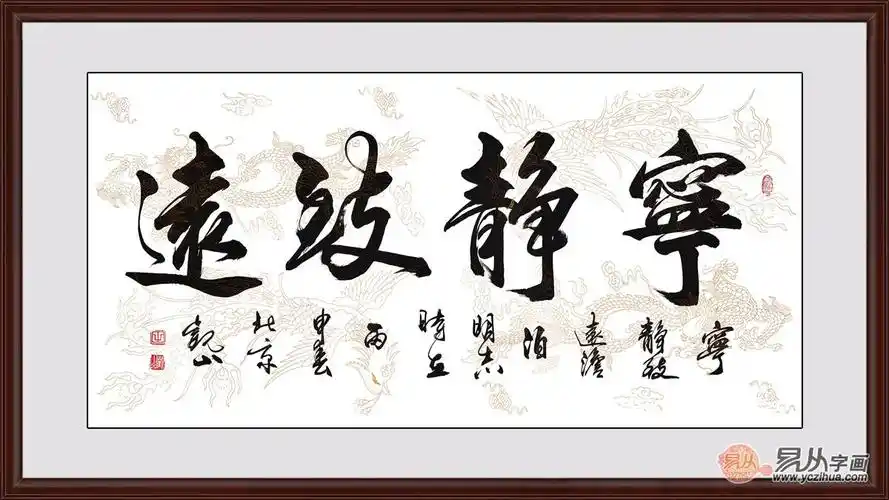 寧靜致遠
寧靜致遠澹泊明志時在丙申春北京觀山
易从
易从字画
www.yczihua.com